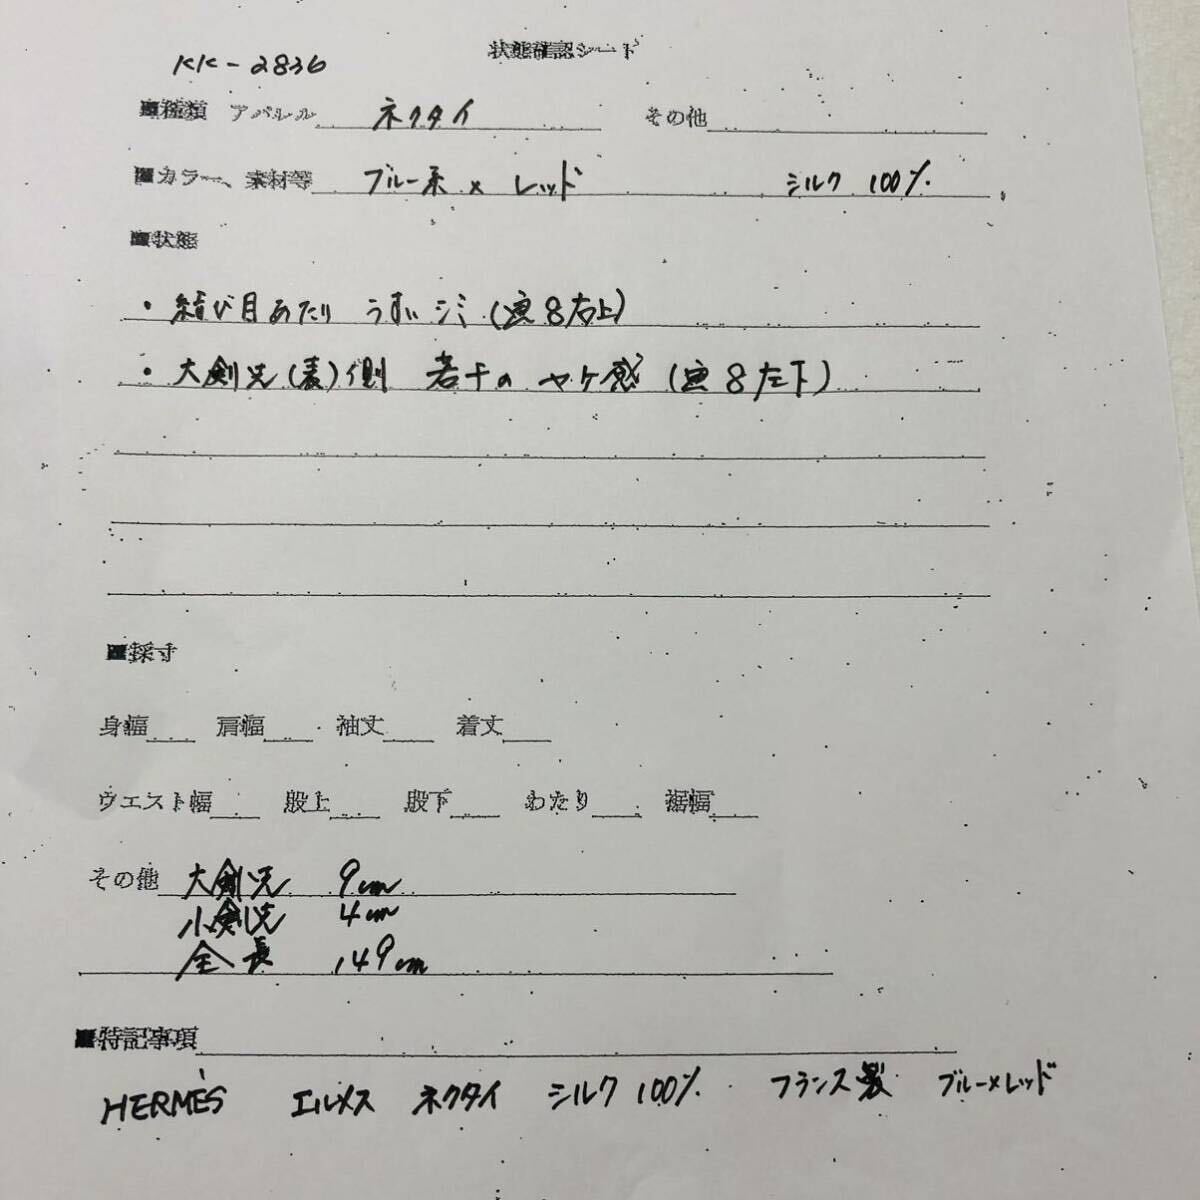 状態確認シート
KK-2836
■種類 アパレル ネクタイ その他
■カラー、素材等 ブルー系 × レッド シルク 100%
■状態
・結び目あたり うすいシミ(画8右上)
・大剣先(表)側 若干の ヤケ感(画8左下)
■採寸
身幅 肩幅 袖丈 着丈
ウエスト幅 股上 股下 わたり 裾幅
その他 大剣先 9cm
小剣先 4cm
全長 149cm
■特記事項
HERMÈS エルメス ネクタイ シルク 100% フランス製 ブルー×レッド